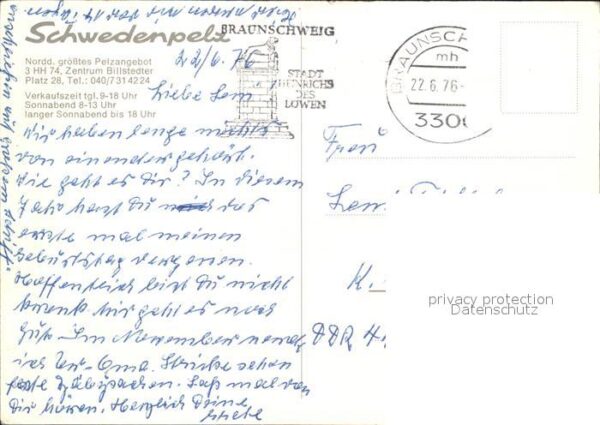 Schwedenpelz
Nordd. größtes Pelzangebot
3 HH 74, Zentrum Billstedter
Platz 28, Tel.: 040/7314224
Verkaufszeit tgl. 9-18 Uhr
Sonnabend 8-13 Uhr
langer Sonnabend bis 18 Uhr
BRAUNSCHWEIG
STADT
HEINRICHS
DES
LÖWEN
BRAUNSCH
mh
22.6.76-
3300
22/6.76
Wir haben lange nichts
von einander gehört.
Wie geht es Dir? In diesem
Jahr hast Du das
erste mal meinen
Geburtstag vergessen.
Hoffentlich bist Du nicht
krank. Mir geht es noch
gut. Im November werde
ich Ur-Oma. Stricke schon
Babysachen. Laß mal von
Dir hören. Herzlich Deine
Frau
K.
DDR 4
privacy protection
Datenschutz